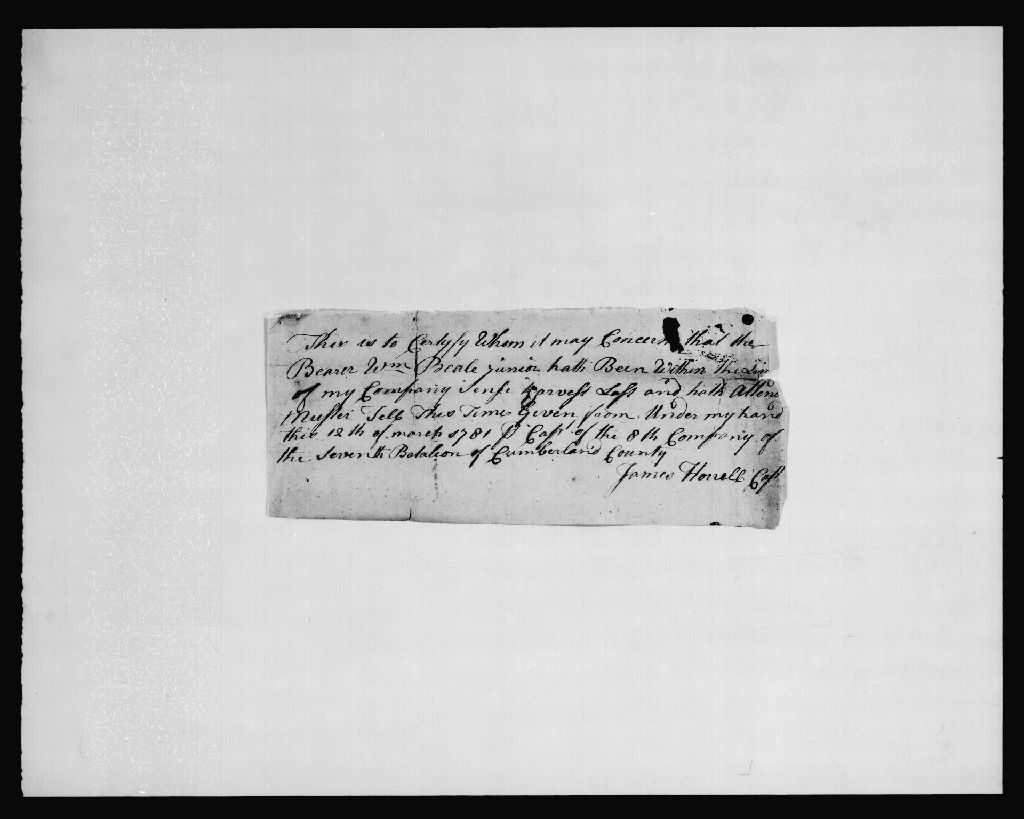 This is to Certyfy Whom it may Concern that the
Bearer Wm Beale Junior hath Been Within the
of my Company Sense Harvest Last and hath Attend
Muster Tell This Time Given from Under my hand
this 12th of march 1781 Pr Capt of the 8th Company of
the Seventh Batalion of Cumberland County
James Horrell Capt